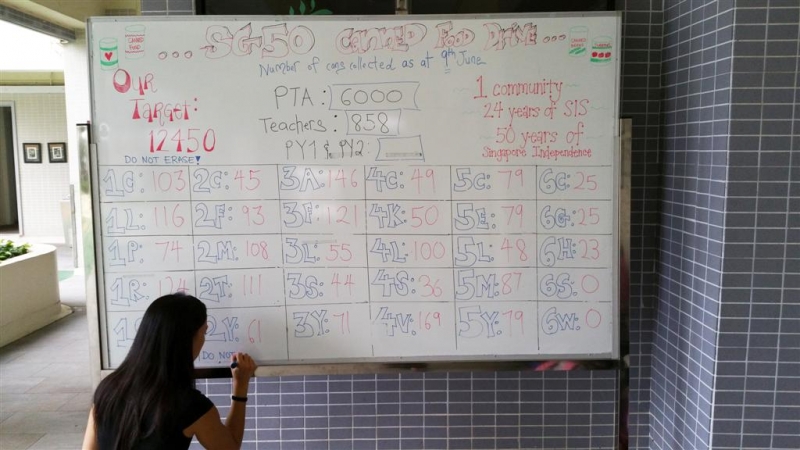 ... SG50 CANNED FOOD DRIVE ...
Number of cans collected as at 9th June
OUR
TARGET:
12450
DO NOT ERASE!
PTA: 6000
Teachers: 858
PY1 & PY2:
1 community
24 years of SIS
50 years of
Singapore Independence
1C: 103 2C: 45 3A: 146 4C: 49 5C: 79 6C: 25
1L: 116 2F: 93 3F: 121 4K: 50 5E: 79 6G: 25
1P: 74 2M: 108 3L: 55 4L: 100 5L: 48 6H: 23
1R: 2T: 111 3S: 44 4S: 36 5M: 87 6S: 0
2Y: 61 3Y: 71 4V: 169 5Y: 79 6W: 0
DO NOT